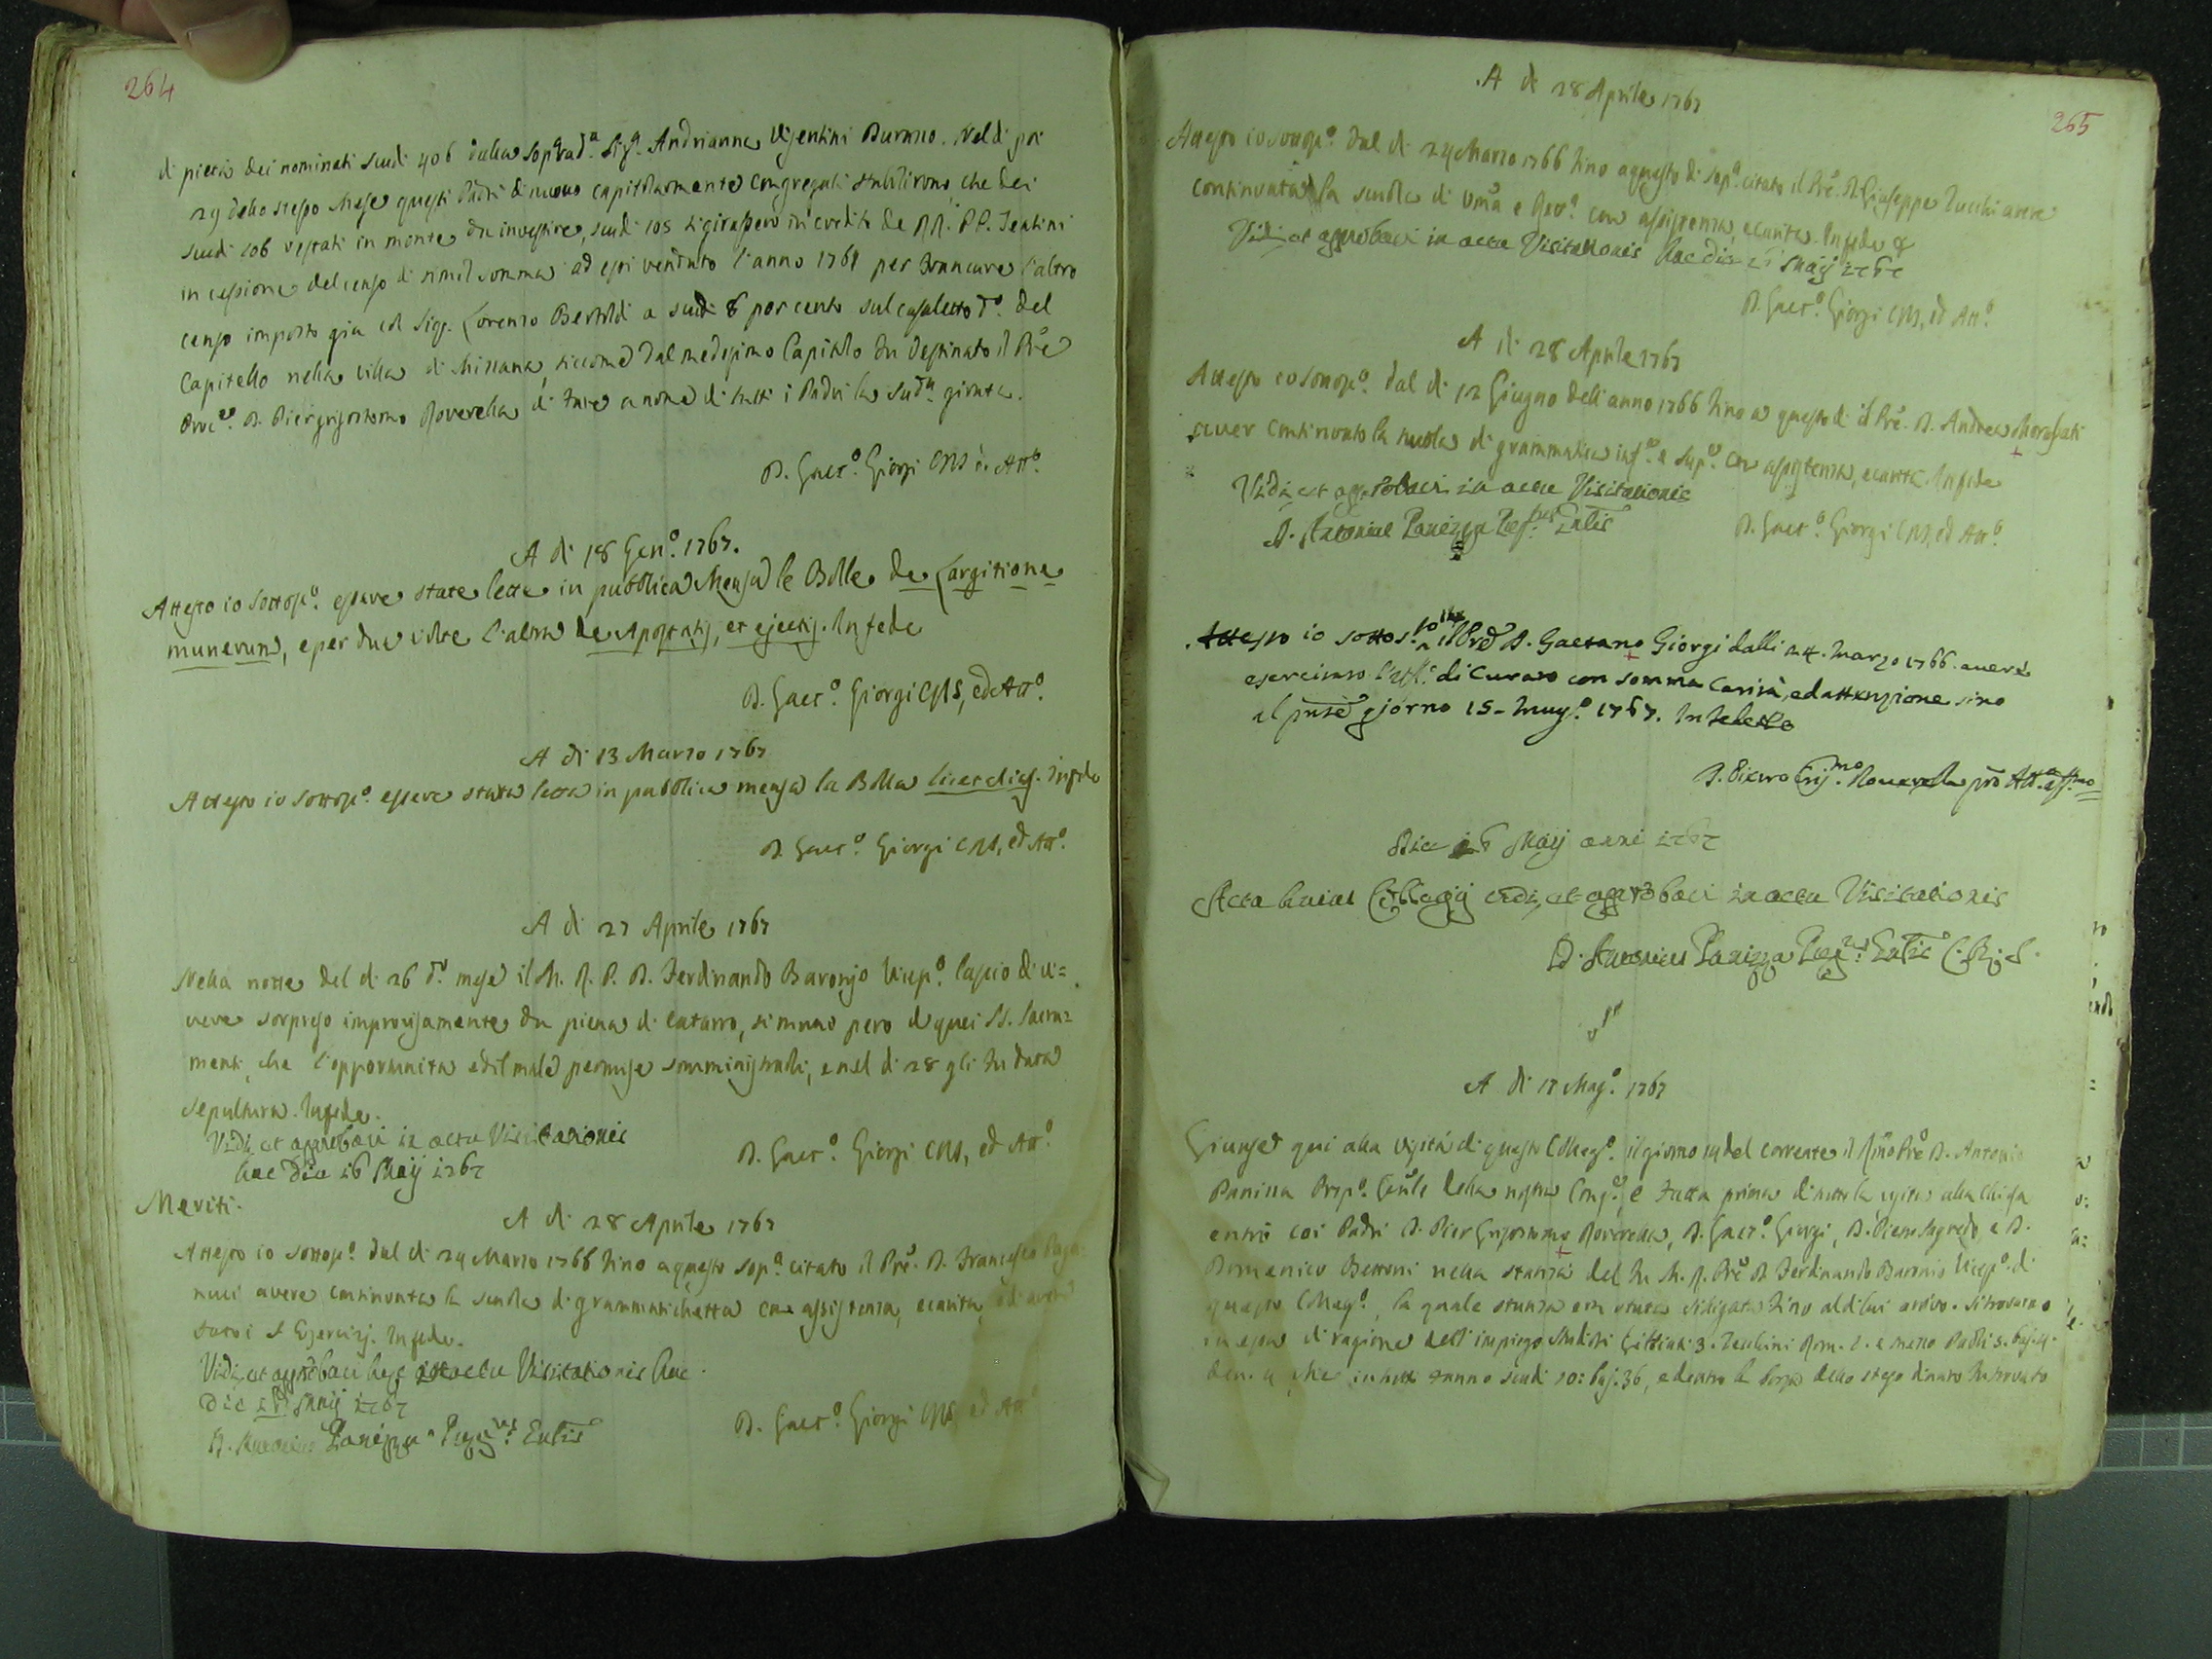 264
di pietà dei nominati scudi 406 dalla soprad.a Sig.a Andrianna Vigentini Buranno. Nel dì poi
29 dello stesso Mese questi Padri di nuovo capitolarmente congregati stabilirono, che dei
scudi 106 restati in monte da investire, scudi 105 si girassero in credito de RR. PP. Teatini
in cessione del censo di simil somma ad essi venduto l'anno 1761 per francare l'altro
censo imposto già col Sigr. Lorenzo Bertoldi a scudi 6 per cento sul casaletto d.o del
Capitello nella villa di Missana, siccome dal medesimo Capitolo fu destinato il Prē
Proc.e D. Piergrisostomo Roverella di fare a nome di tutti i Padri la sud.a girata.
D. Gaet.o Giorgi CRS ed Att.o
A di 18 Gen.o 1767.
Attesto io sottos.o essere state lette in pubblica Mensa le Bolle de Largitione
munerum, e per due volte l'altra de Apostatis, et ejectis. In fede
D. Gaet.o Giorgi CRS, ed Att.o
A di 13 Marzo 1767
Attesto io sottos.o essere stata letta in pubblica mensa la Bolla In fede
D. Gaet.o Giorgi CRS, ed Att.o
A di 27 Aprile 1767
Nella notte del dì 26 d.o mese il M. R. P. D. Ferdinando Baronio Vicep.o lasciò di vi=
vere sorpreso improvisamente da piena di cataro, si munì però di quei SS. Sacra=
menti, che l'opportunità ed il male permise somministrarli, e nel dì 28 gli fu data
sepultura. In fede.
Vidi, et approbavi in actu Visitationis
hac die 16 Maij 1767
D. Gaet.o Giorgi CRS, ed Att.o
Meriti.
A di 28 Aprile 1767
Attesto io sottos.o dal dì 24 Marzo 1766 fino a questo sop.a citato il Prē. D. Francesco
avere continuata la scuola di grammatichetta con assistenza, e carità, ed aver
fatti S. Esercizj. In fede.
Vidi, et approbavi in actu Visitationis hac
die 16 Maij 1767
D. Antonius Panizza Prep.tus Gnlis
D. Gaet.o Giorgi CRS, ed Att.o
265
A di 28 Aprile 1767
Attesto io sottos.o dal dì 24 Marzo 1766 fino a questo dì sop.a citato il Prē. D. Giuseppe Zucchi avere
continuata la scuola di Umā e Ret.a con assistenza, e carità. In fede
Vidi, et approbavi in actu Visitationis hac die 16 Maij 1767
D. Gaet.o Giorgi CRS, ed Att.o
A di 28 Aprile 1767
Attesto io sottos.o dal dì 12 Giugno dell'anno 1766 fino a questo dì il Prē. D. Andrea
aver continuato la scuola di grammatica inf.e e sup.e con assistenza, e carità. In fede
Vidi, et approbavi in actu Visitationis
D. Antonius Panizza Prep.tus Gnlis
D. Gaet.o Giorgi CRS, ed Att.o
Attesto io sottos.to il Prē D. Gaetano Giorgi dalli 24. Marzo 1766. avere
esercitato l'uff.o di Curato con somma carità, ed attenzione sino
al pntē giorno 15. Magg.o 1767. In fede
D. Piero Gris.mo Roverella prō Att.o
Die 16 Maij anni 1767
Acta huius Collegij vidi, et approbavi in actu Visitationis
D. Antonius Panizza Prep.tus Gnlis C. R. S.
A di 17 Mag.o 1767
Giunse qui alla visita di questo Colleg.o il giorno 14 del corrente il Rmō Prē D. Antonio
Panizza Prep.o Gnle della nostra Cong.e, e fatta prima di notte la visita alla Chiesa
entrò coi Padri D. Pier Grisostomo Roverella, D. Gaet.o Giorgi, D. Piero Sagredo, e D.
Domenico Bettoni nella stanza del fu M. R. Prē D. Ferdinando Baronio Vicep.o di
questo Colleg.o, la quale stanza era stata sigillata fino al di lui arivo. Si trovarono
in essa di ragione dell'impiego Gilliati 3. Zecchini Rom. 2. e mezzo Paoli 5. baj. 4.
den. 4, che in tutti fanno scudi 10: baj. 36, e dentro la borsa dello stesso dinaro fu trovato